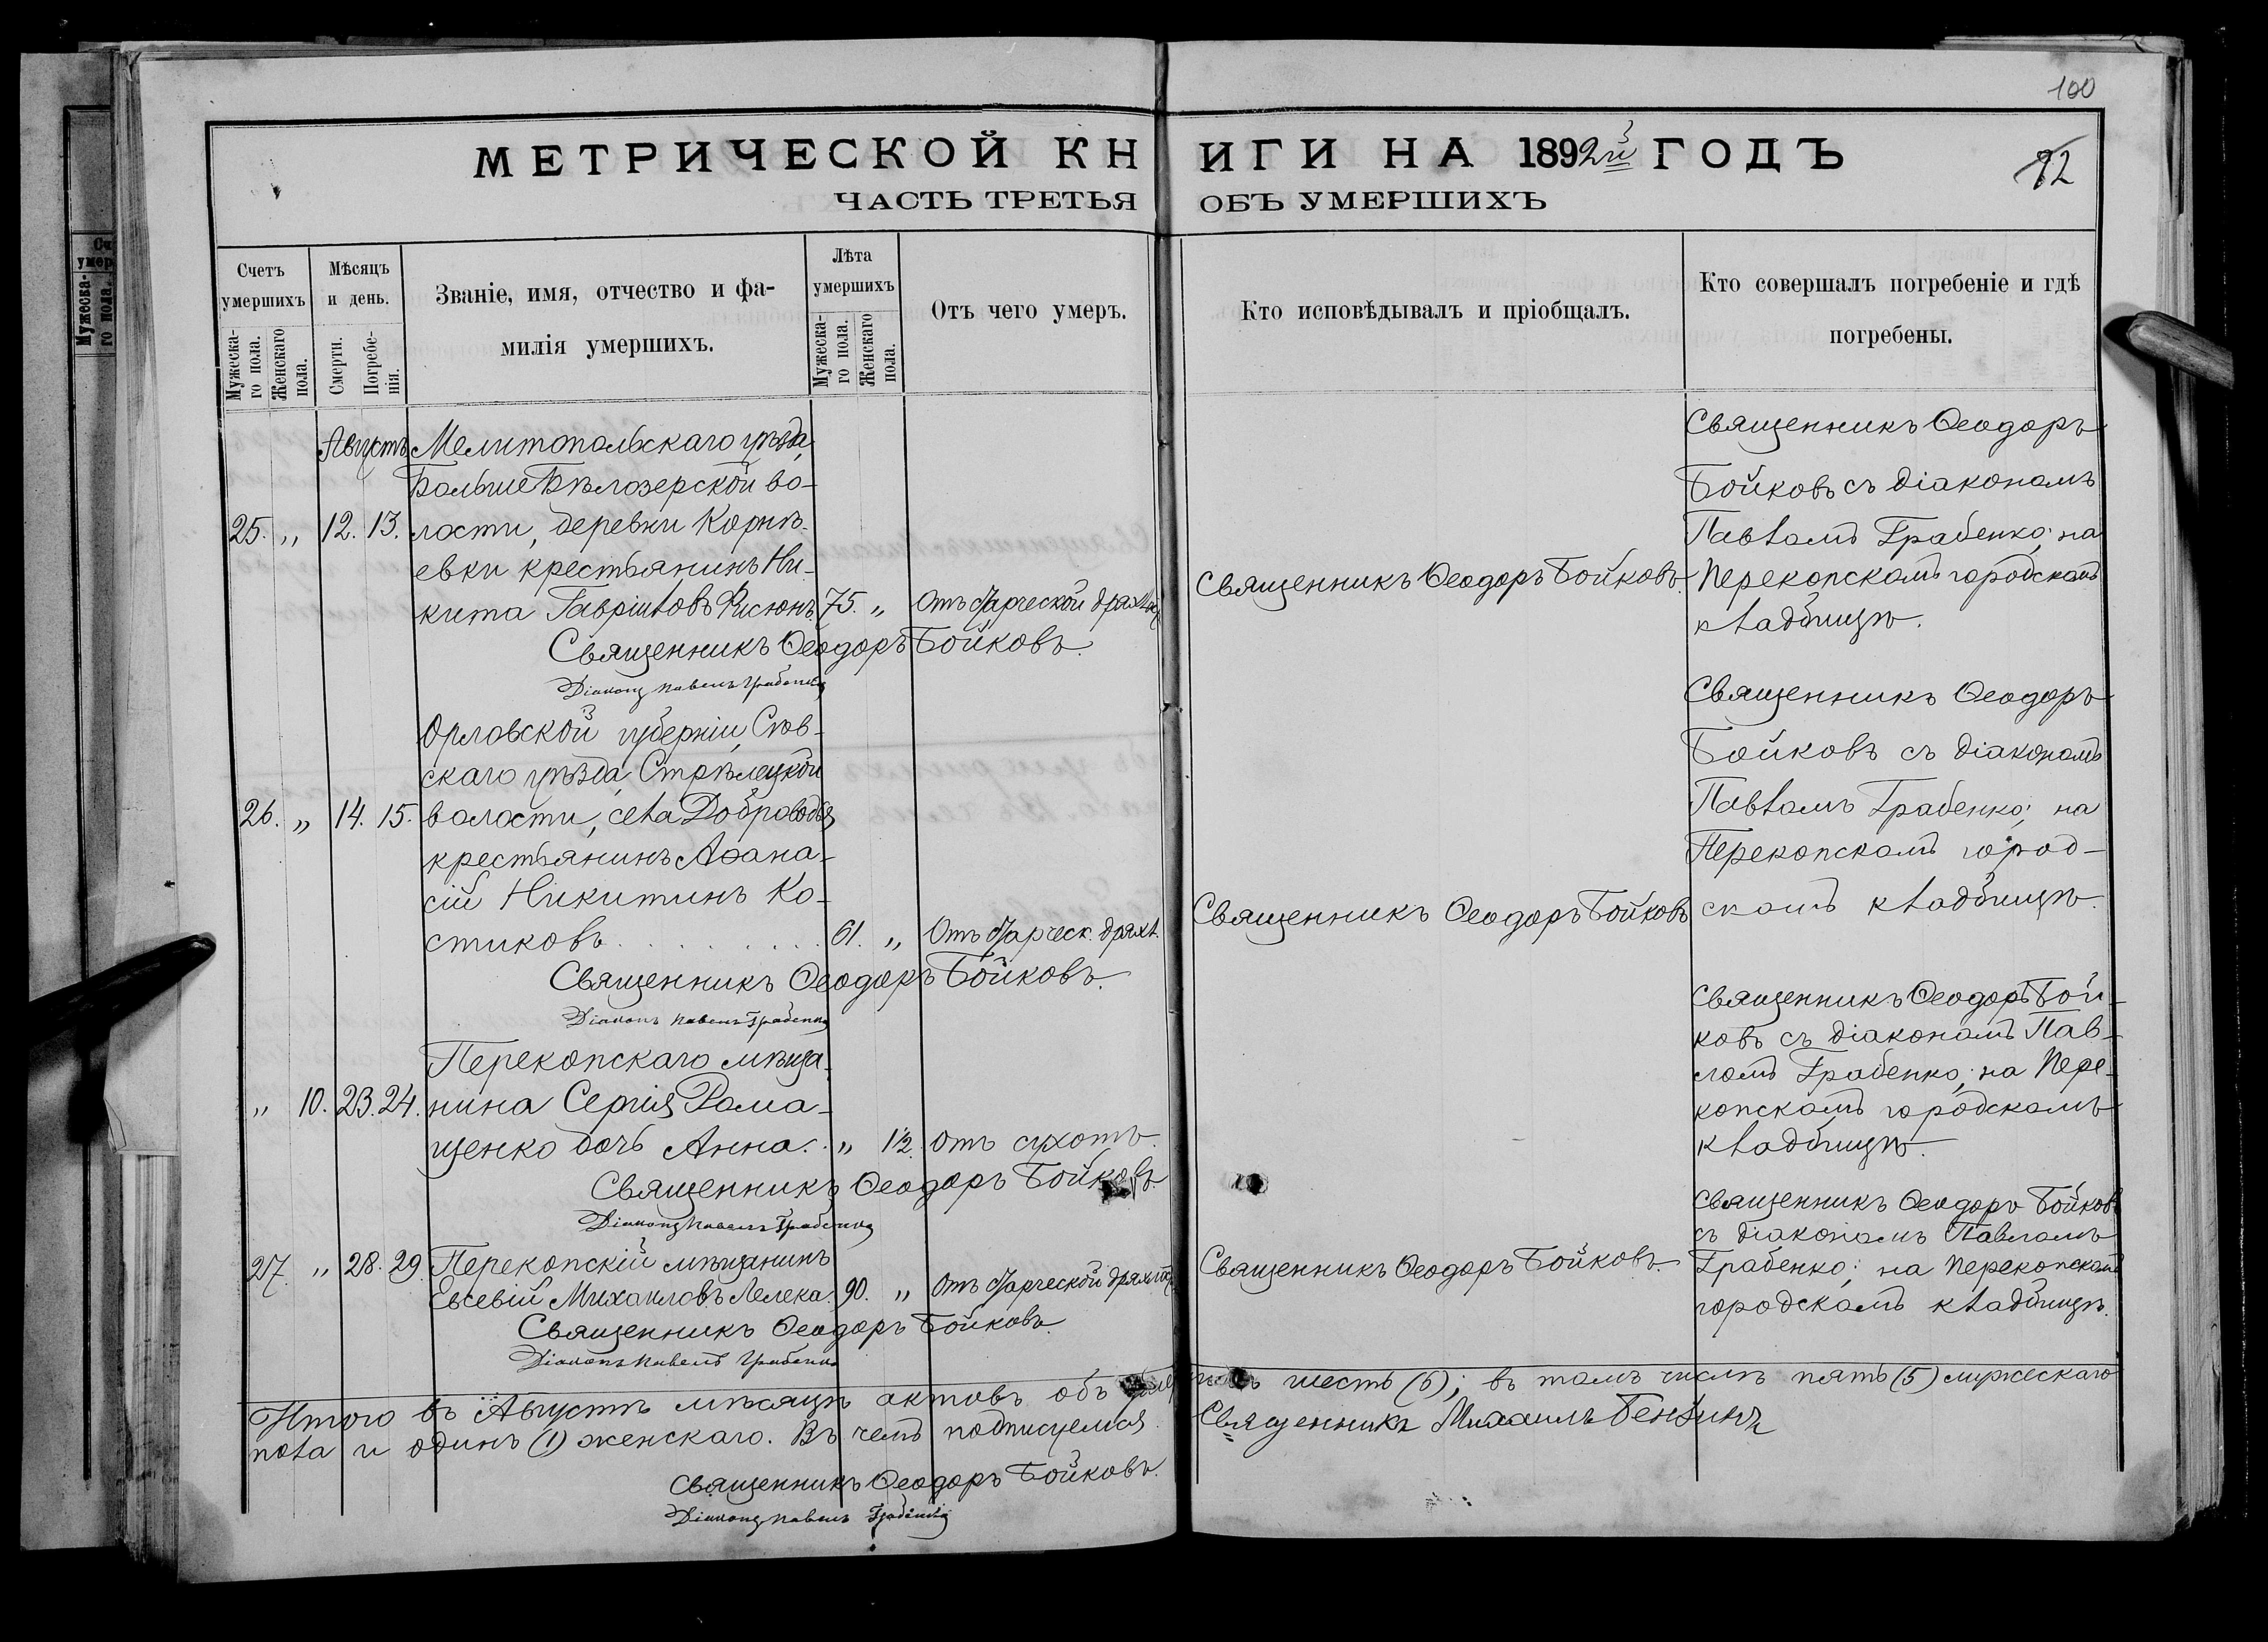 100
МЕТРИЧЕСКОЙ КНИГИ НА 1892й ГОДЪ
82
ЧАСТЬ ТРЕТЬЯ ОБЪ УМЕРШИХЪ
Счетъ умершихъ
Мужеска-
го пола.
Женскаго
пола.
Мѣсяцъ
и день.
Смерти.
Погребе-
нія.
Званіе, имя, отчество и фа-
милія умершихъ.
Лѣта
умершихъ
Мужеска-
го пола.
Женскаго
пола.
Отъ чего умеръ.
Кто исповѣдывалъ и пріобщалъ.
Кто совершалъ погребеніе и гдѣ
погребены.
Августъ
25. „ 12. 13.
Мелитопольскаго уѣзда,
Больше Бѣлозерской во-
лости, деревни Корнѣ-
евки крестьянинъ Ни-
кита Гавріиловъ 75. „ Отъ старческой дряхл.
Священникъ Ѳеодоръ Бойковъ.
Діаконъ Павелъ Грабенко
Священникъ Ѳеодоръ Бойковъ
Священникъ Ѳеодоръ
Бойковъ съ діакономъ
Павломъ Грабенко; на
Перекопскомъ городскомъ
кладбищѣ.
26. „ 14. 15.
Орловской губерніи, Сѣв-
скаго уѣзда, Стрѣлецкой
волости, села Доброводья
крестьянинъ Аѳана-
сій Никитинъ Ко-
стиковъ. . . . . . . . 61. „ Отъ старческ. дряхл.
Священникъ Ѳеодоръ Бойковъ.
Діаконъ Павелъ Грабенко
Священникъ Ѳеодоръ Бойковъ
Священникъ Ѳеодоръ
Бойковъ съ діакономъ
Павломъ Грабенко; на
Перекопскомъ город-
скомъ кладбищѣ.
„ 10. 23. 24.
Перекопскаго мѣща-
нина Сергія Рома-
щенко дочь Анна. . „ 1/2. отъ сухотъ.
Священникъ Ѳеодоръ Бойковъ.
Діаконъ Павелъ Грабенко
Священникъ Ѳеодоръ Бой-
ковъ съ діакономъ Пав-
ломъ Грабенко; на Пере-
копскомъ городскомъ
кладбищѣ.
27. „ 28. 29.
Перекопскій мѣщанинъ
Евсевій Михаиловъ Лелека. 90. „ Отъ старческой дряхл.
Священникъ Ѳеодоръ Бойковъ.
Діаконъ Павелъ Грабенко
Священникъ Ѳеодоръ Бойковъ
Священникъ Ѳеодоръ Бойковъ
съ діакономъ Павломъ
Грабенко; на Перекопскомъ
городскомъ кладбищѣ.
Итого въ Августѣ мѣсяцѣ актовъ объ умершихъ шесть (6); въ томъ числѣ пять (5) мужескаго
пола и одинъ (1) женскаго. Въ чемъ подписуемся
Священникъ Михаилъ
Священникъ Ѳеодоръ Бойковъ.
Діаконъ Павелъ Грабенко